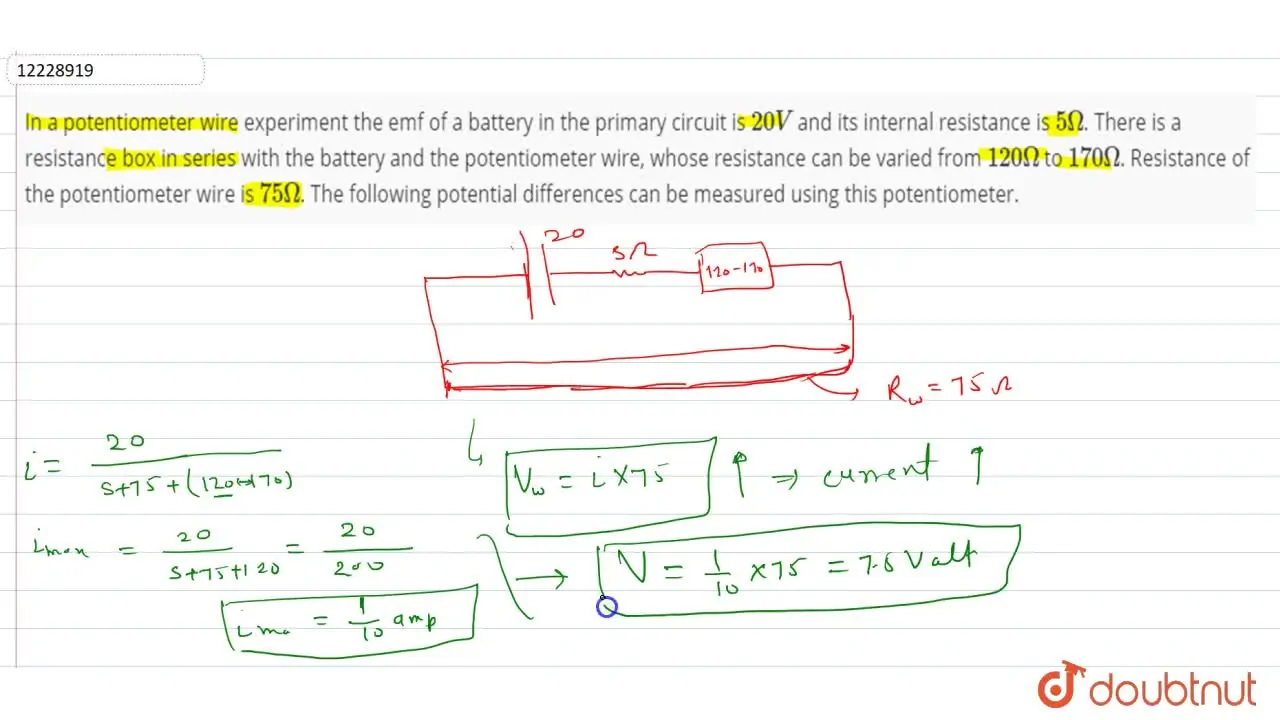 12228919
In a potentiometer wire experiment the emf of a battery in the primary circuit is 20V and its internal resistance is 5Ω. There is a
resistance box in series with the battery and the potentiometer wire, whose resistance can be varied from 120Ω to 170Ω. Resistance of
the potentiometer wire is 75Ω. The following potential differences can be measured using this potentiometer.
20
5Ω
120-170
R_w = 75 Ω
i = 20 / (5+75+(120↔170))
V_w = i×75 ↑ ⇒ current ↑
i_max = 20 / (5+75+120) = 20 / 200
→ V = 1/10 ×75 = 7.5 Valt
i_ma = 1/10 amp
doubtnut